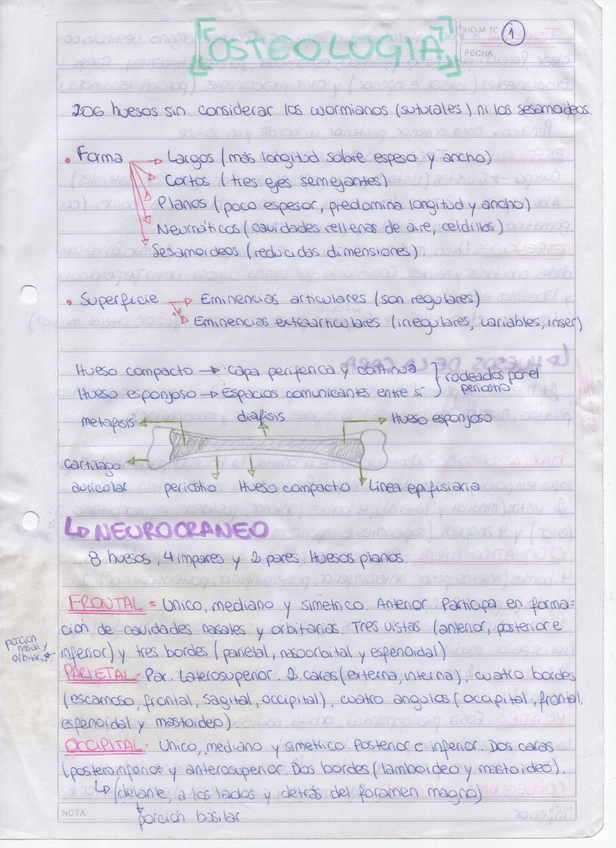 HOJA N° 1
FECHA
OSTEOLOGIA
206 huesos sin considerar los wormianos (suturales) ni los sesamoideos.
• Forma → Largos (más longitud sobre espesor y ancho)
→ Cortos (tres ejes semejantes)
→ Planos (poco espesor, predomina longitud y ancho)
Neumáticos (cavidades rellenas de aire, celdillas)
→ Sesamoideos (reducidas dimensiones).
• Superficie → Eminencias articulares (son regulares)
→ Eminencias extraarticulares (irregulares, variables, inser)
Hueso compacto → Capa periferica y continua } rodeados por el
Hueso esponjoso → Espacios comunicantes entre sí } periostio
metafisis diafisis → Hueso esponjoso
cartilago
auricular periostio Hueso compacto Linea epifisiaria
↳ NEUROCRANEO
8 huesos, 4 impares y 2 pares. Huesos planos.
FRONTAL = Unico, mediano y simetrico. Anterior. Participa en forma-
ción de cavidades nasales y orbitarias. Tres vistas (anterior, posterior e
porcion
nasal y
orbitaria
inferior) y tres bordes (parietal, nasoorbital y esfenoidal)
PARIETAL = Par. Laterosuperior. 2 caras (externa, interna), cuatro bordes
(escamoso, frontal, sagital, occipital), cuatro angulos (occipital, frontal,
esfenoidal y mastoideo)
OCCIPITAL = Unico, mediano y simetrico. Posterior e inferior. Dos caras
(posteroinferior y anterosuperior. Dos bordes (lamboideo y mastoideo).
↳ (delante, a los lados y detrás del foramen magno)
porción basilar
NOTA